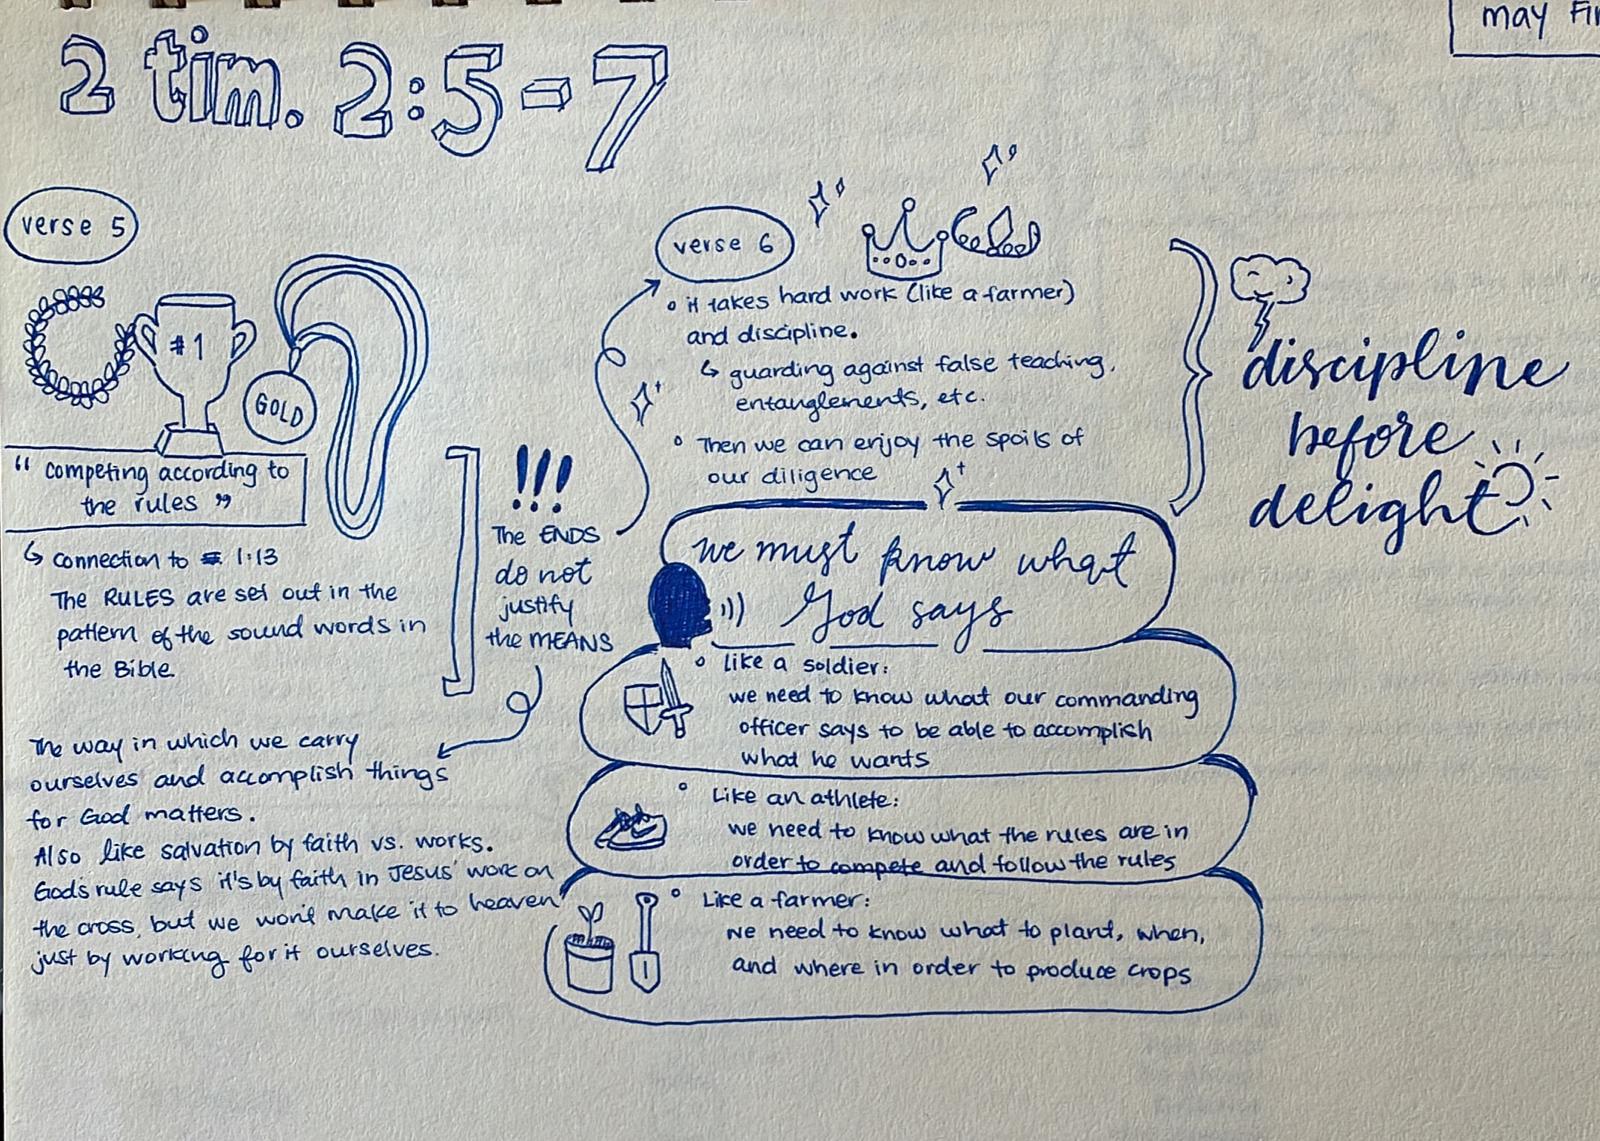 may Fir
2 tim. 2:5-7
verse 5
#1
GOLD
" competing according to
the rules "
↳ connection to 1:13
The RULES are set out in the
pattern of the sound words in
the Bible
!!!
The ENDS
do not
justify
the MEANS
The way in which we carry
ourselves and accomplish things
for God matters.
Also like salvation by faith vs. works.
God's rule says it's by faith in Jesus' work on
the cross, but we won't make it to heaven
just by working for it ourselves.
verse 6
◦ it takes hard work (like a farmer)
and discipline.
↳ guarding against false teaching,
entanglements, etc.
◦ Then we can enjoy the spoils of
our diligence
discipline
before
delight
we must know what
God says
◦ Like a soldier:
we need to know what our commanding
officer says to be able to accomplish
what he wants
◦ Like an athlete:
we need to know what the rules are in
order to compete and follow the rules
◦ Like a farmer:
we need to know what to plant, when,
and where in order to produce crops